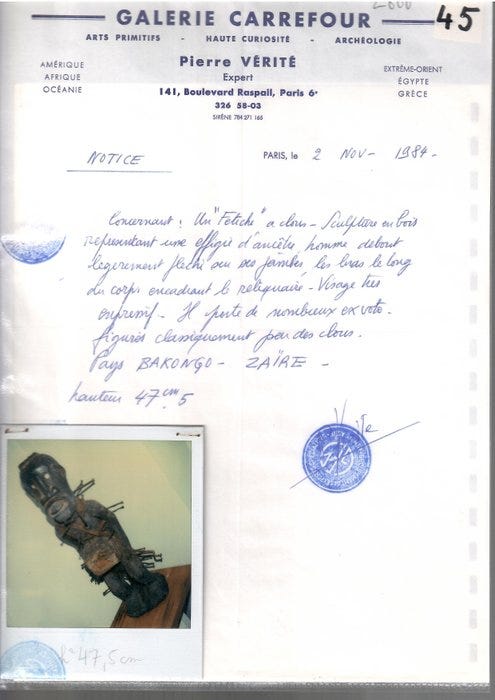 45
GALERIE CARREFOUR
ARTS PRIMITIFS - HAUTE CURIOSITÉ - ARCHÉOLOGIE
AMÉRIQUE
AFRIQUE
OCÉANIE
Pierre VÉRITÉ
Expert
141, Boulevard Raspail, Paris 6e
326 58-03
SIRÈNE 784 271 165
EXTRÊME-ORIENT
ÉGYPTE
GRÈCE
NOTICE
PARIS, le 2 NOV- 1984-
Concernant : Un "Fetiche" a clous - Sculpture en bois
représentant une effigie d'ancêtre homme debout
légèrement flechi sur ses jambes les bras le long
du corps encadrant le reliquaire - Visage très
expressif - Il porte de nombreux ex voto -
figurés classiquement par des clous.
Pays BAKONGO - ZAÏRE -
hauteur 47 cm 5
hr 47,5 cm